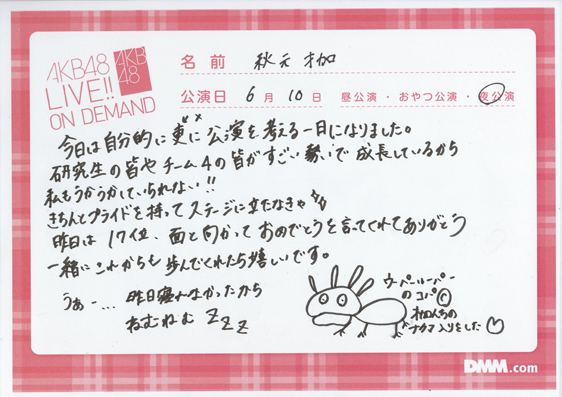 AKB48
LIVE!!
ON DEMAND
AKB
48
名前 秋元才加
公演日 6月10日 昼公演・おやつ公演・夜公演
今日は自分的に更に公演を考える一日になりました。
研究生の皆やチーム4の皆がすごい勢いで成長しているから
私もうかうかしていられない!!
きちんとプライドを持ってステージに立たなきゃ
昨日は17位、面と向かっておめでとうを言ってくれてありがとう
一緒にこれからも歩んでくれたら嬉しいです。
うぁー… 昨日寝れなかったから
ねむねむ ZZZ
ウーパールーパー
のコパ©
才加んちの
ナカマ入りをした♡
DMM.com